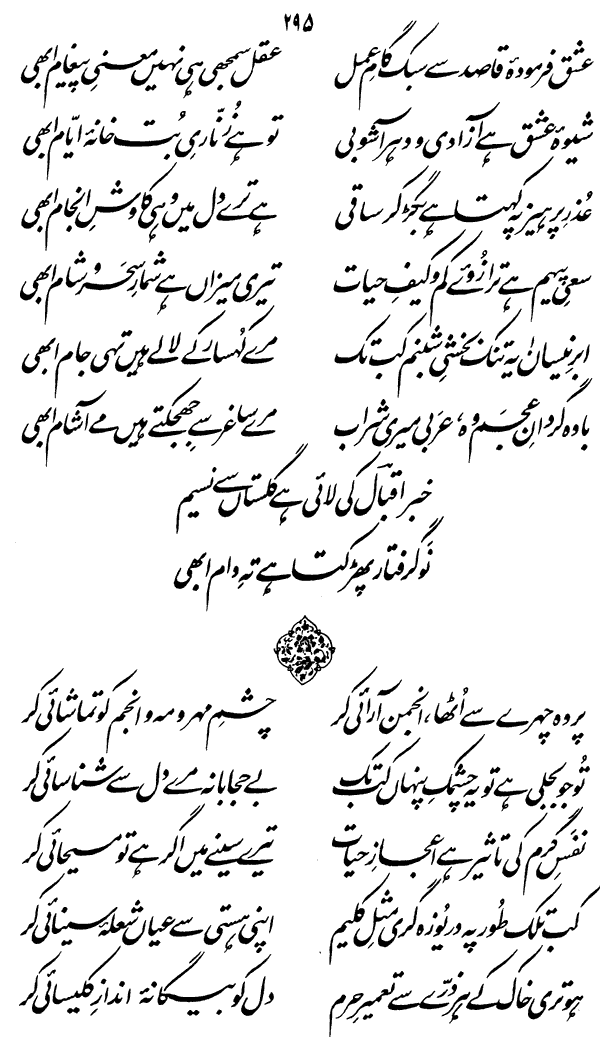 ۲۹۵
عشق فرمودۂ قاصد سے سبک گامِ عمل عقل سمجھی ہی نہیں معنیِ پیغام ابھی
شیوۂ عشق ہے آزادی و دہر آشوبی تو ہے زُنّاریِ بُت خانۂ ایّام ابھی
عُذرِ پرہیز پہ کہتا ہے بگڑ کر ساقی ہے ترے دل میں وہی کاوشِ انجام ابھی
سعیِ پیہم ہے ترازُوئے کم و کیفِ حیات تیری میزاں ہے شمارِ سحَر و شام ابھی
ابرِ نیساں! یہ تنک بخشیِ شبنم کب تک مرے کُہسار کے لالے ہیں تہی جام ابھی
بادہ گردانِ عجَم وہ، عرَبی میری شراب مرے ساغر سے جھجکتے ہیں مے آشام ابھی
خبر اقبالؔ کی لائی ہے گلستاں سے نسیم
نَو گرفتار پھڑکتا ہے تہِ دام ابھی
پردہ چہرے سے اُٹھا، انجمن آرائی کر چشمِ مہر و مہ و انجم کو تماشائی کر
تُو جو بجلی ہے تو یہ چشمکِ پنہاں کب تک بے حجابانہ مرے دل سے شناسائی کر
نفَسِ گرم کی تاثیر ہے اعجازِ حیات تیرے سینے میں اگر ہے تو مسیحائی کر
کب تلک طُور پہ دریُوزہ گری مثلِ کلیم اپنی ہستی سے عیاں شعلۂ سینائی کر
ہو تری خاک کے ہر ذرّے سے تعمیرِ حرم دل کو بیگانۂ اندازِ کلیسائی کر